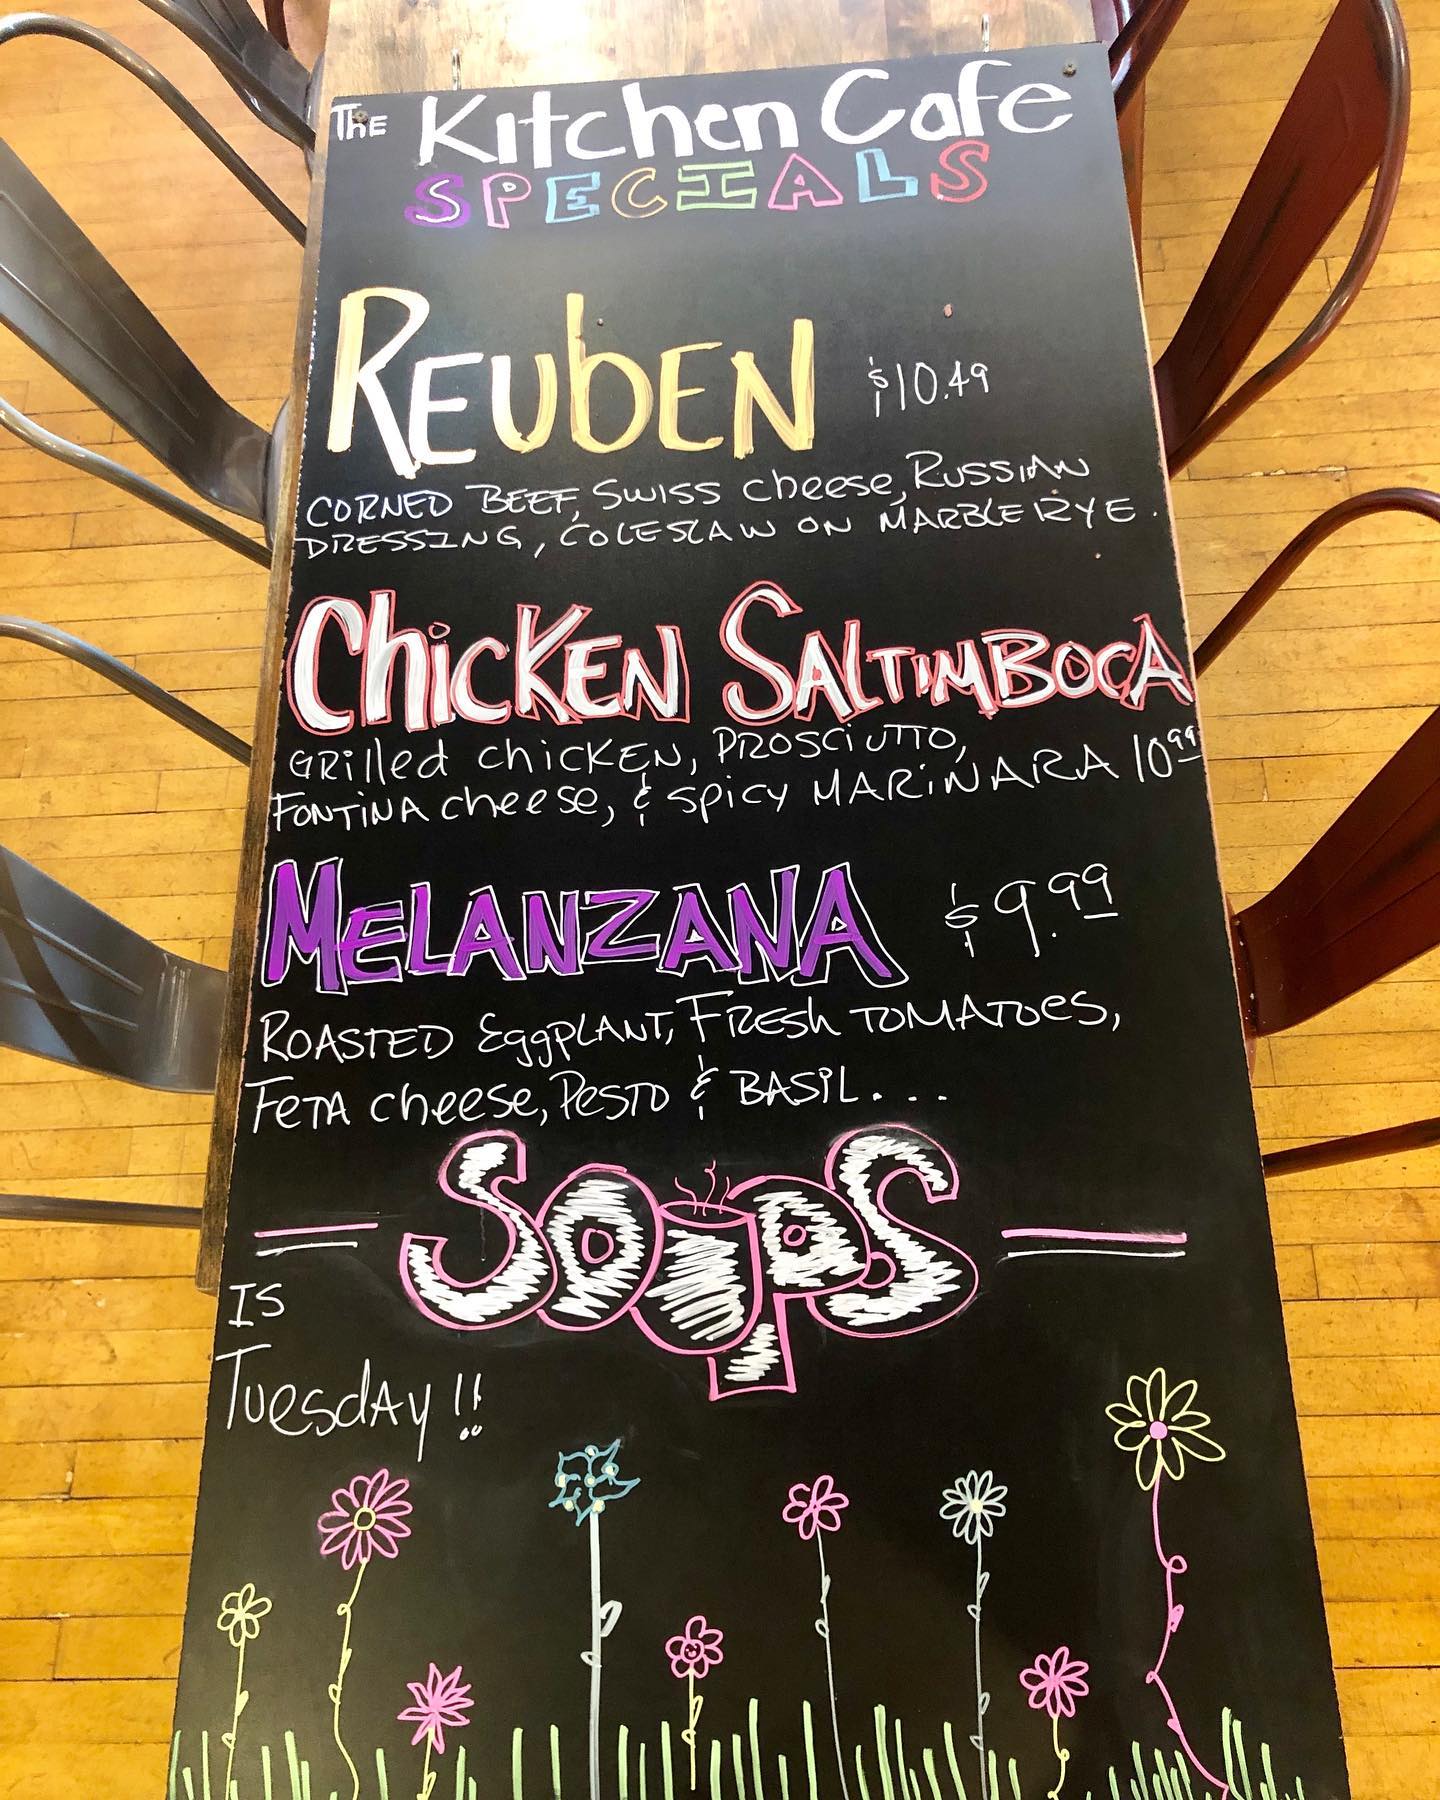 The Kitchen Cafe
SPECIALS
REUBEN $10.49
CORNED BEEF, SWISS cheese, RUSSIAN
DRESSING, COLESLAW ON MARBLE RYE.
ChicKEN SALTIMBOCA
GRilled chicKEN, PROSCIUTTO,
FONTINA cheese, & spicy MARINARA 10.99
MELANZANA $9.99
ROASTED EggPLANT, FRESh TOMATOES,
FETA cheese, PESTO & BASIL...
SOUPS
IS
TuesdAy!!